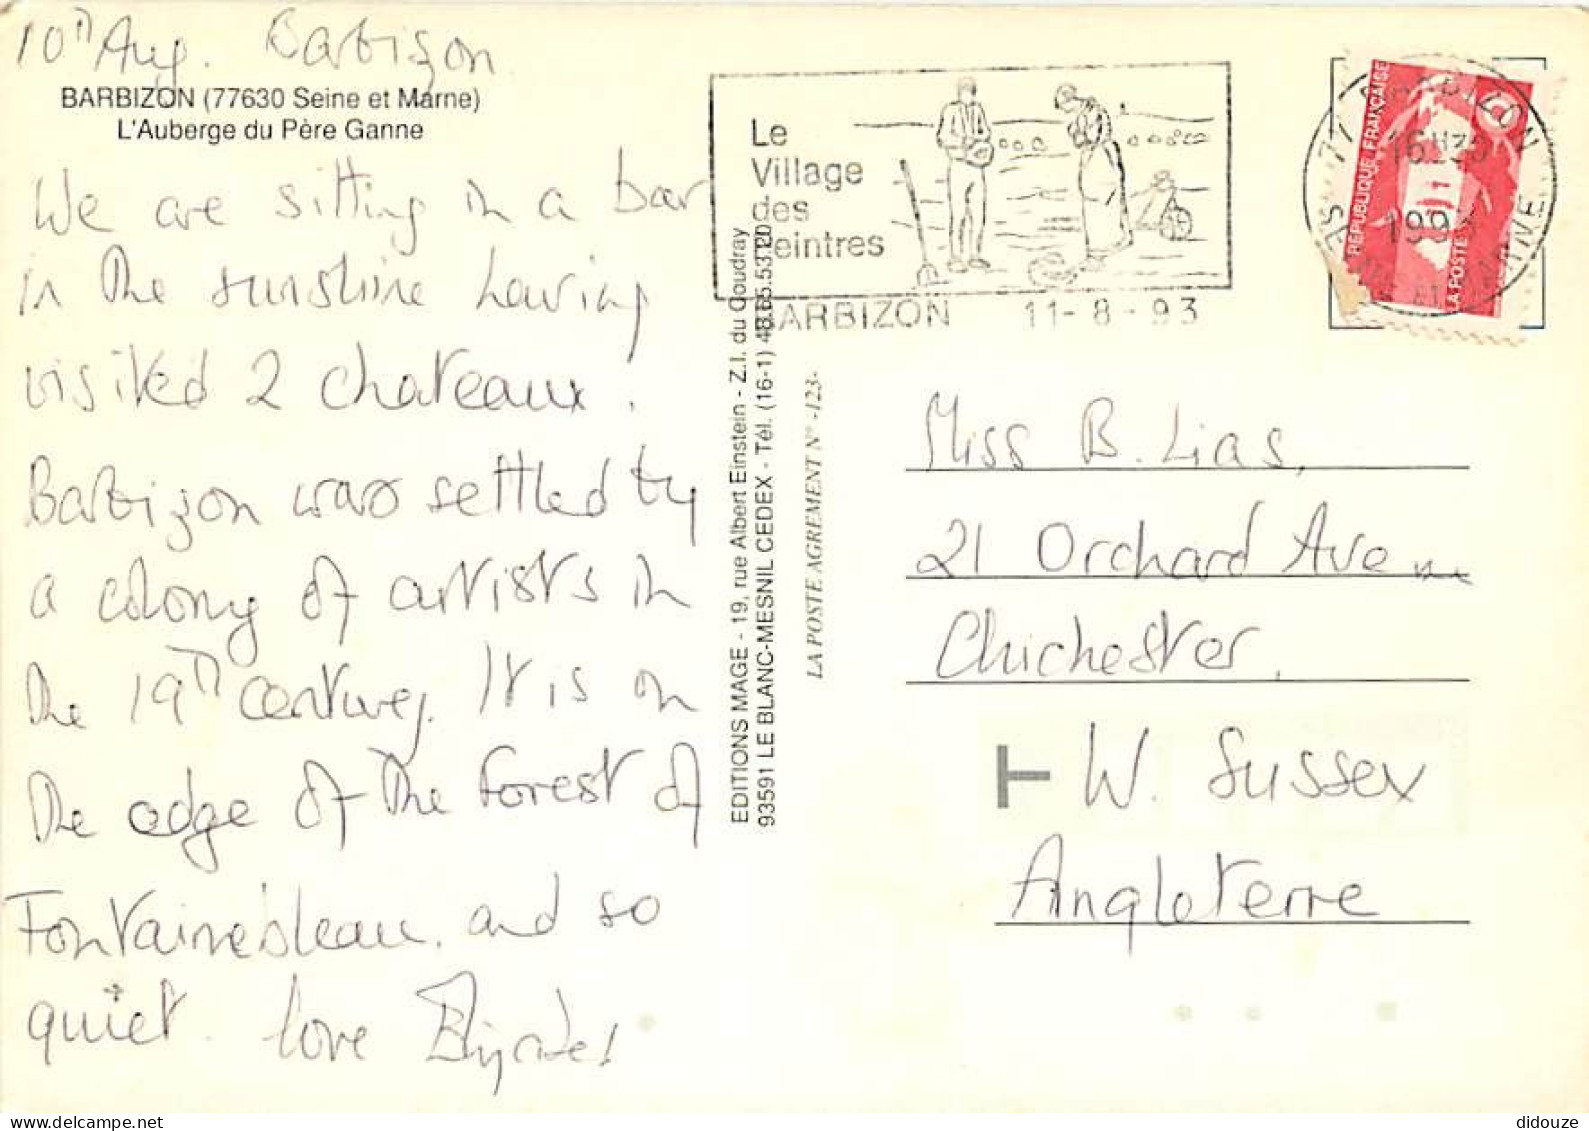 10th Aug. Barbizon.
BARBIZON (77630 Seine et Marne)
L'Auberge du Père Ganne
We are sitting in a bar
in the sunshine having
visited 2 chateaux.
Barbizon was settled by
a colony of artists in
the 19th century. It is on
the edge of the forest of
Fontainebleau. and so
quiet. love
EDITIONS MAGE - 19, rue Albert Einstein - Z.I. du Coudray
93591 LE BLANC-MESNIL CEDEX - Tél. (16-1)
LA POSTE AGREMENT N° -123-
Le
Village
des
Peintres
BARBIZON 11-8-93
77 BARBIZON
1993
SEINE ET MARNE
REPUBLIQUE FRANÇAISE
LA POSTE
Miss B. Lias,
21 Orchard Avenue
Chichester,
T W. Sussex
Angleterre
didouze